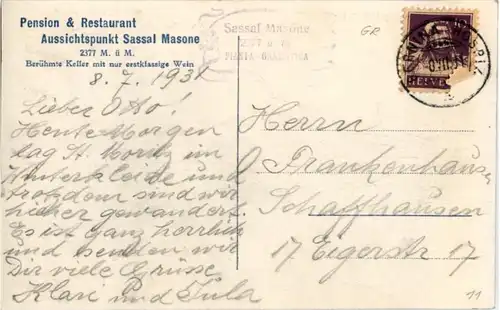 Pension & Restaurant
Aussichtspunkt Sassal Masone
2377 M. ü M.
Berühmte Keller mit nur erstklassige Wein
Sassal Masone
2377 ü M
GR
HELVE
8. 7. 193
Lieber Otto!
Heute Morgen
lag St. Moritz im
Winterkleide und
trotzdem sind wir
hieher gewandert.
Es ist ganz herrlich
und senden wir
Dir viele Grüsse
Klari und Tula
Herrn
O Frankenhauser
Schaffhausen
17 Eigerstr 17
11